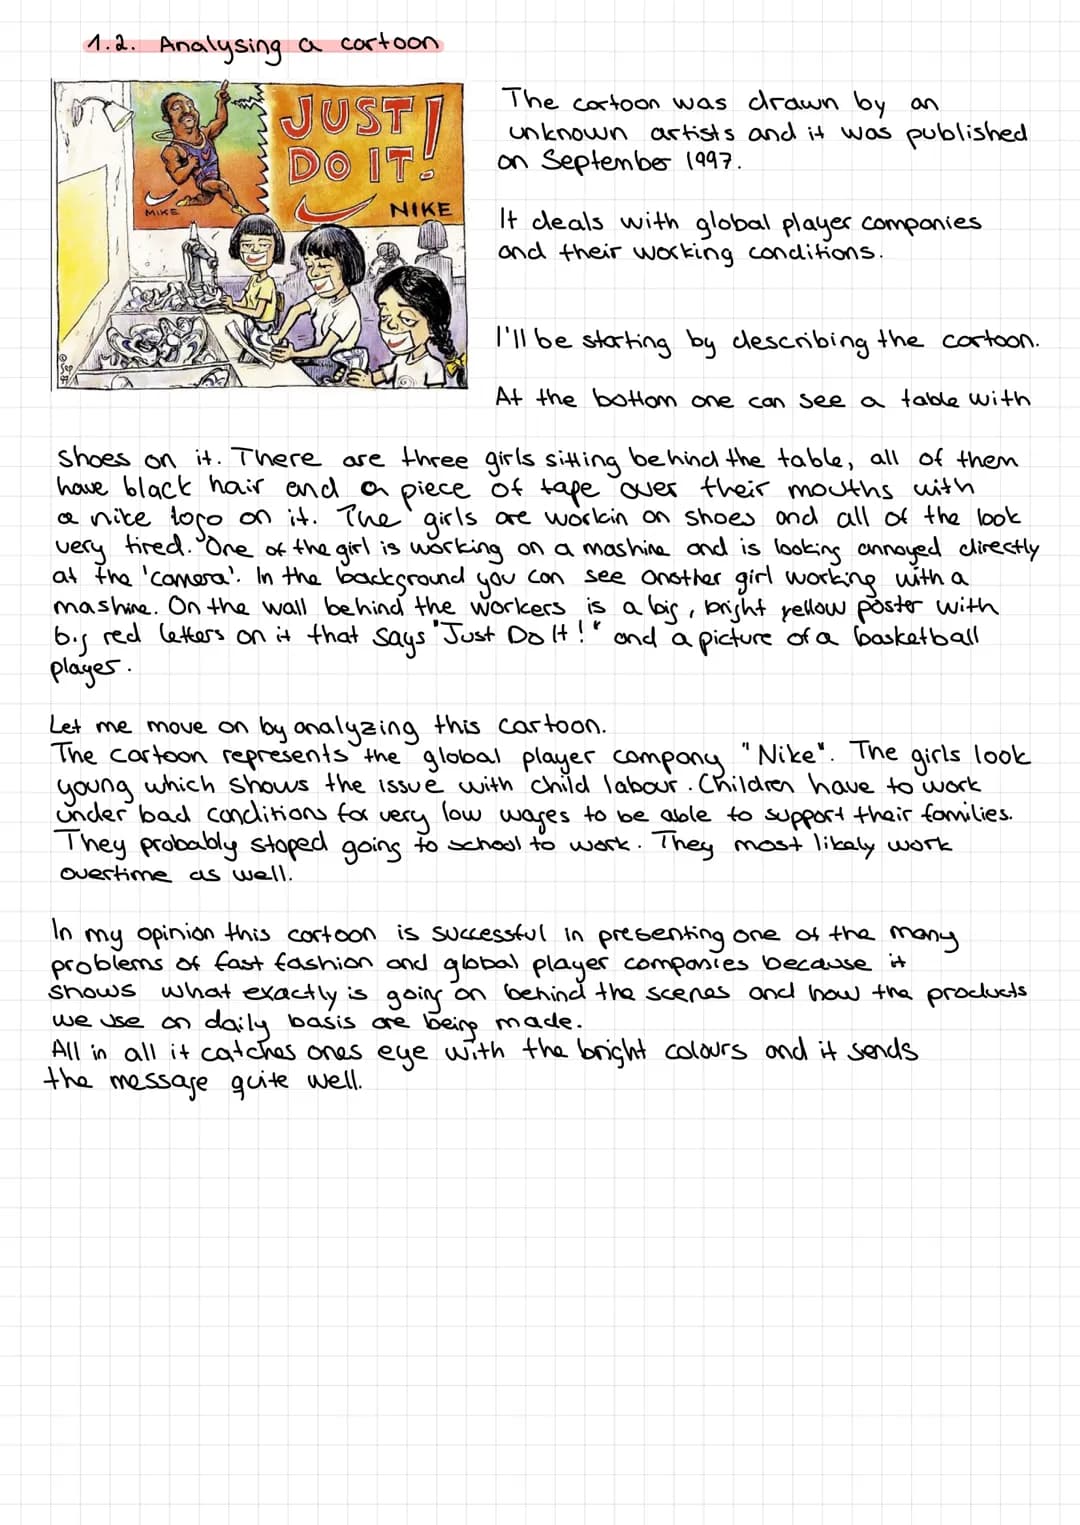 1.2. Analysing a cartoon
JUST
DO IT!
MIKE
NIKE
© Sep
97
The cartoon was drawn by an
unknown artists and it was published
on September 1997.
It deals with global player companies
and their working conditions.
I'll be starting by describing the cartoon.
At the bottom one can see a table with
shoes on it. There are three girls sitting behind the table, all of them
have black hair and a piece of tape over their mouths with
a nike logo on it. The girls are workin on shoes and all of the look
very tired. One of the girl is working on a mashine and is looking annoyed directly
at the 'camera'. In the background you can see another girl working with a
mashine. On the wall behind the workers is a big, bright yellow poster with
big red letters on it that says "Just Do It!" and a picture of a basketball
player.
Let me move on by analyzing this cartoon.
The cartoon represents the global player company "Nike". The girls look
young which shows the issue with child labour. Children have to work
under bad conditions for very low wages to be able to support their families.
They probably stoped going to school to work. They most likely work
overtime as well.
In my opinion this cartoon is successful in presenting one of the many
problems of fast fashion and global player companies because it
shows what exactly is going on behind the scenes and how the products
we use on daily basis are being made.
All in all it catches ones eye with the bright colours and it sends
the message quite well.